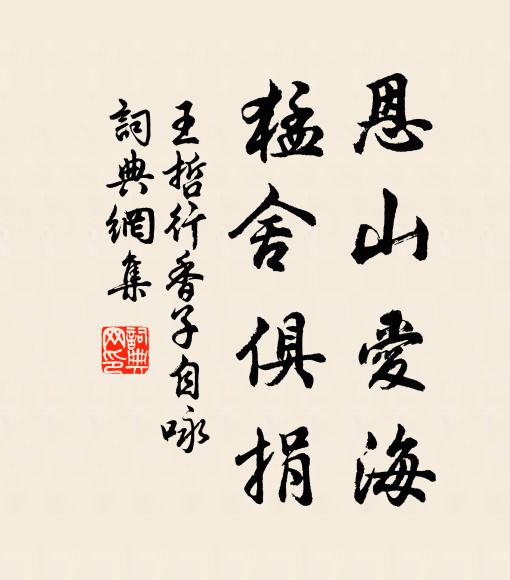 恩山愛海
猛舍俱捐
王哲行香子自咏
詞典網集
詞典
网印